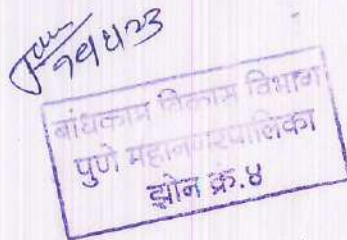 बांधकाम विकास विभाग
पुणे महानगरपालिका
झोन क्र.४